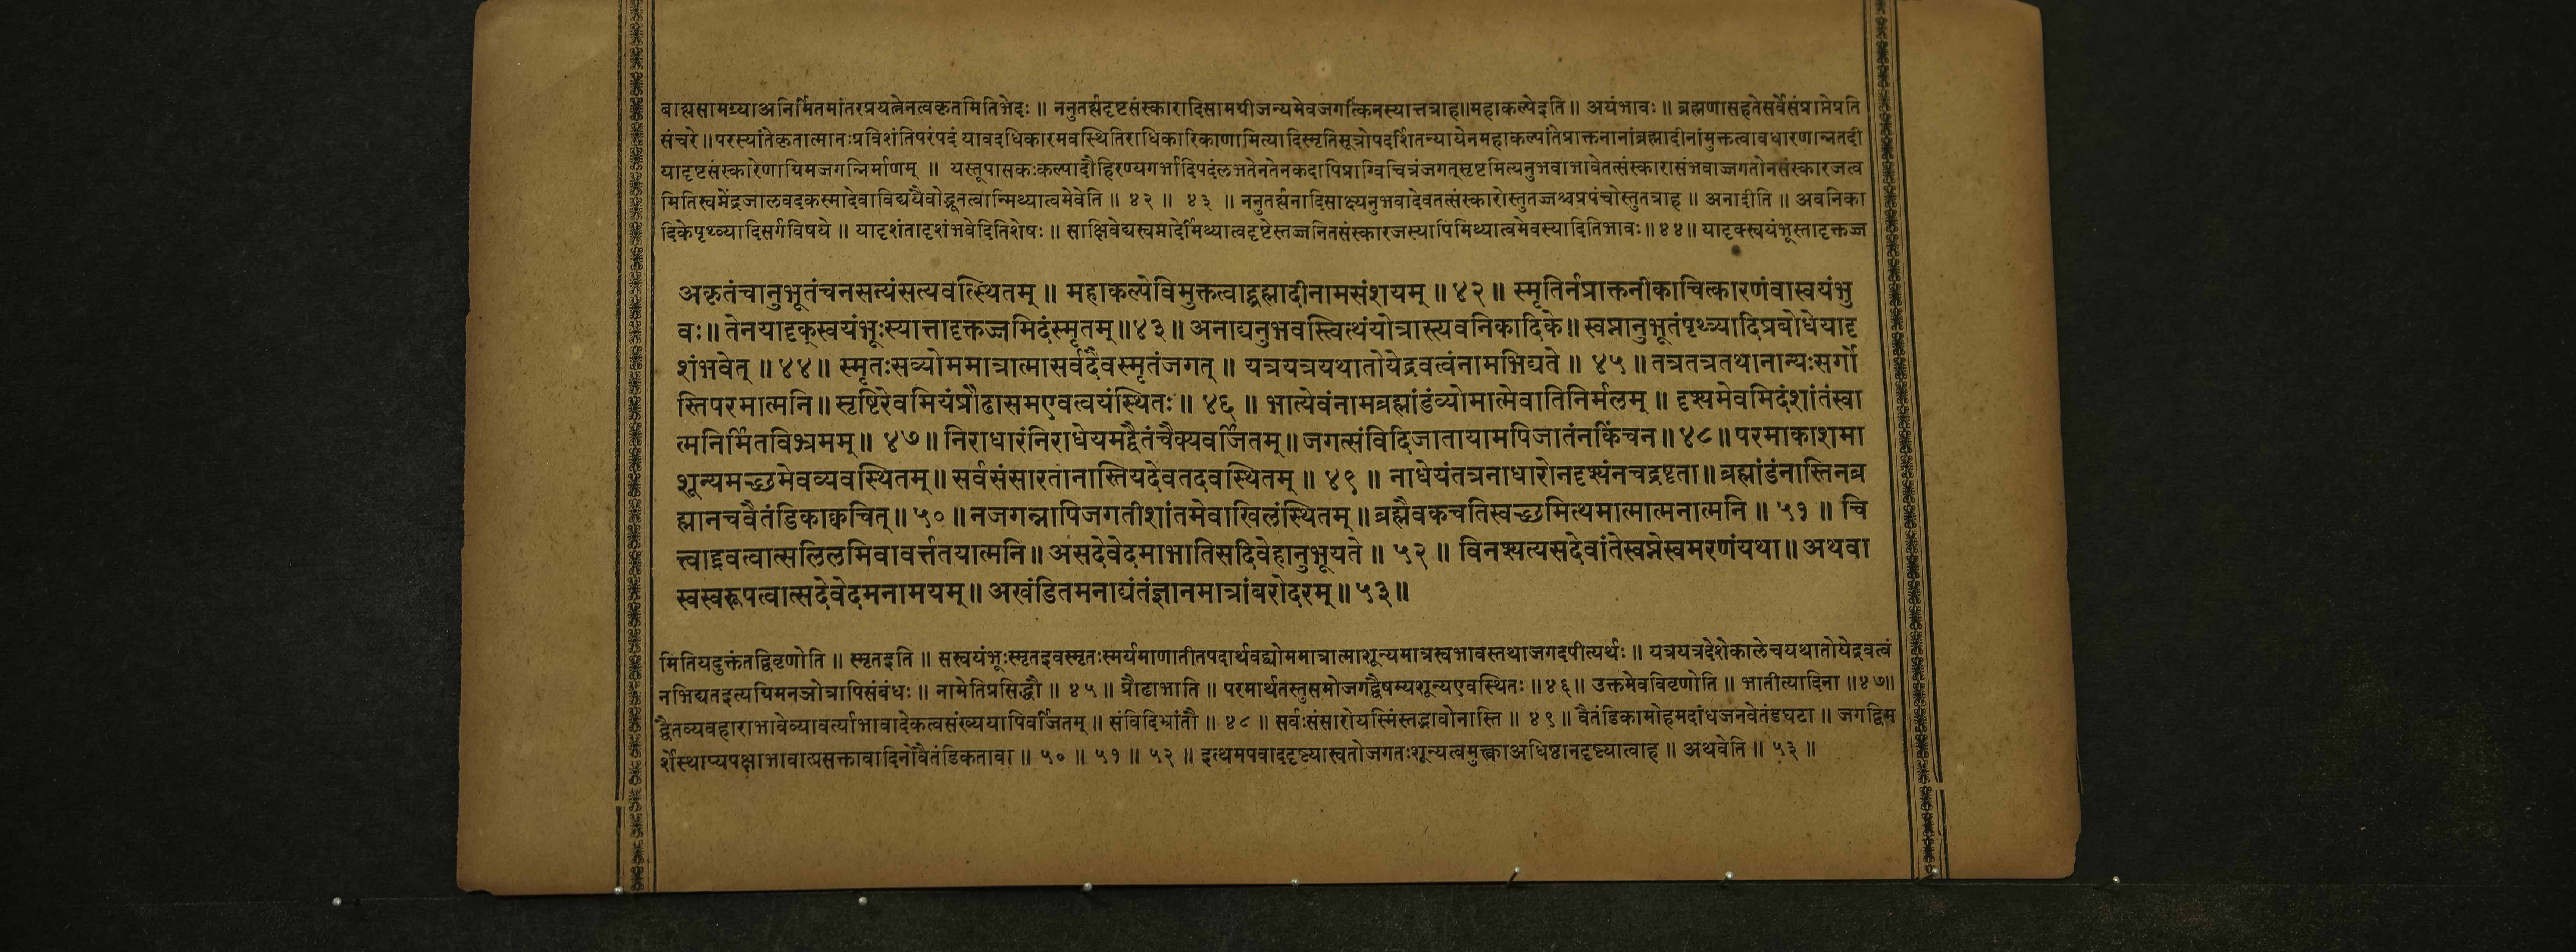 बाह्यसामग्र्याअनिर्मितमांतरप्रयत्नेनत्वकृतमितिभेदः ॥ ननुतर्ह्यदृष्टसंस्कारादिसामग्रीजन्यमेवजगत्किंनस्यात्तत्राह॥महाकल्पेइति ॥ अयंभावः ॥ ब्रह्मणासहतेसर्वेसंप्राप्तेप्रति
संचरे॥परस्यांतेकृतात्मानःप्रविशंतिपरंपदं यावदधिकारमवस्थितिराधिकारिकाणामित्यादिस्मृतिसूत्रोपदर्शितन्यायेनमहाकल्पांतेप्राक्तनानांब्रह्मादीनांमुक्तत्वावधारणान्नतदी
यादृष्टसंस्कारेणाग्रिमजगन्निर्माणम् ॥ यस्तूपासकःकल्पादौहिरण्यगर्भादिपदंलभतेनतेनकदापिप्राग्विचित्रंजगत्सृष्टमित्यनुभवाभावेतत्संस्कारासंभवाज्जगतोनसंस्कारजत्व
मितिस्वमेंद्रजालवदकस्मादेवाविद्ययैवोद्भूतत्वान्मिथ्यात्वमेवेति ॥ ४२ ॥ ४३ ॥ ननुतर्ह्यनादिसाक्ष्यनुभवादेवतत्संस्कारोस्तुतज्जश्चप्रपंचोस्तुतत्राह ॥ अनादीति ॥ अवनिका
दिकेपृथ्व्यादिसर्गविषये ॥ यादृशंतादृशंभवेदितिशेषः ॥ साक्षिवेद्यस्वप्नादेर्मिथ्यात्वदृष्टेस्तज्जनितसंस्कारजस्यापिमिथ्यात्वमेवस्यादितिभावः॥४४॥ यादृक्स्वयंभूस्तादृक्तज्ज
अकृतंचानुभूतंचनसत्यंसत्यवत्स्थितम् ॥ महाकल्पेविमुक्तत्वाद्ब्रह्मादीनामसंशयम् ॥४२॥ स्मृतिर्नप्राक्तनीकाचित्कारणंवास्वयंभु
वः॥ तेनयादृक्स्वयंभूःस्यात्तादृक्तज्जमिदंस्मृतम्॥४३॥ अनाद्यनुभवस्त्वित्थंयोत्रास्त्यवनिकादिके॥ स्वप्नानुभूतंपृथ्व्यादिप्रबोधेयादृ
शंभवेत् ॥४४॥ स्मृतःसव्योममात्रात्मासर्वदैवस्मृतंजगत् ॥ यत्रयत्रयथातोयेद्रवत्वंनामभिद्यते ॥ ४५ ॥ तत्रतत्रतथानान्यःसर्गो
स्तिपरमात्मनि॥ सृष्टिरेवमियंप्रौढासमएवत्वयंस्थितः॥ ४६ ॥ भात्येवंनामब्रह्मांडंव्योमात्मेवातिनिर्मलम् ॥ दृश्यमेवमिदंशांतंस्वा
त्मनिर्मितविभ्रमम्॥ ४७॥ निराधारंनिराधेयमद्वैतंचैक्यवर्जितम्॥ जगत्संविदिजातायामपिजातंनकिंचन॥४८॥ परमाकाशमा
शून्यमच्छमेवव्यवस्थितम्॥ सर्वसंसारतानास्तियदेवतदवस्थितम् ॥ ४९ ॥ नाधेयंतत्रनाधारोनदृश्यंनचद्रष्टृता॥ ब्रह्मांडंनास्तिनब्र
ह्मानचवैतंडिकाक्वचित्॥ ५० ॥ नजगन्नापिजगतीशांतमेवाखिलंस्थितम्॥ ब्रह्मैवकचतिस्वच्छमित्थमात्मात्मनात्मनि ॥ ५१ ॥ चि
त्त्वाद्द्रवत्वात्सलिलमिवावर्त्ततयात्मनि॥ असदेवेदमाभातिसदिवेहानुभूयते ॥ ५२ ॥ विनश्यत्यसदेवांतेस्वप्नेस्वमरणंयथा॥ अथवा
स्वस्वरूपत्वात्सदेवेदमनामयम्॥ अखंडितमनाद्यंतंज्ञानमात्रांबरोदरम्॥ ५३॥
मितियदुक्तंतद्विवृणोति ॥ स्मृतइति ॥ सस्वयंभूःस्मृतइवस्मृतःस्मर्यमाणातीतपदार्थवद्व्योममात्रात्माशून्यमात्रस्वभावस्तथाजगदपीत्यर्थः ॥ यत्रयत्रदेशेकालेचयथातोयेद्रवत्वं
नभिद्यतइत्यग्रिमनञोत्रापिसंबंधः ॥ नामेतिप्रसिद्धौ ॥ ४५ ॥ प्रौढाभाति ॥ परमार्थतस्तुसमोजगद्वैषम्यशून्यएवस्थितः ॥४६॥ उक्तमेवविवृणोति ॥ भातीत्यादिना ॥४७॥
द्वैतव्यवहाराभावेव्यावर्त्याभावादेकत्वसंख्ययापिवर्जितम् ॥ संविदिभ्रांतौ ॥ ४८ ॥ सर्वःसंसारोयस्मिंस्तद्भावोनास्ति ॥ ४९ ॥ वैतंडिकामोहमदांधजनवेतंडघटा ॥ जगद्विम
र्शेस्थाप्यपक्षाभावात्प्रसक्तावादिनोवैतंडिकतावा ॥ ५० ॥ ५१ ॥ ५२ ॥ इत्थमपवाददृष्ट्यास्वतोजगतःशून्यत्वमुक्त्वाअधिष्ठानदृष्ट्यात्वाह ॥ अथवेति ॥ ५३ ॥